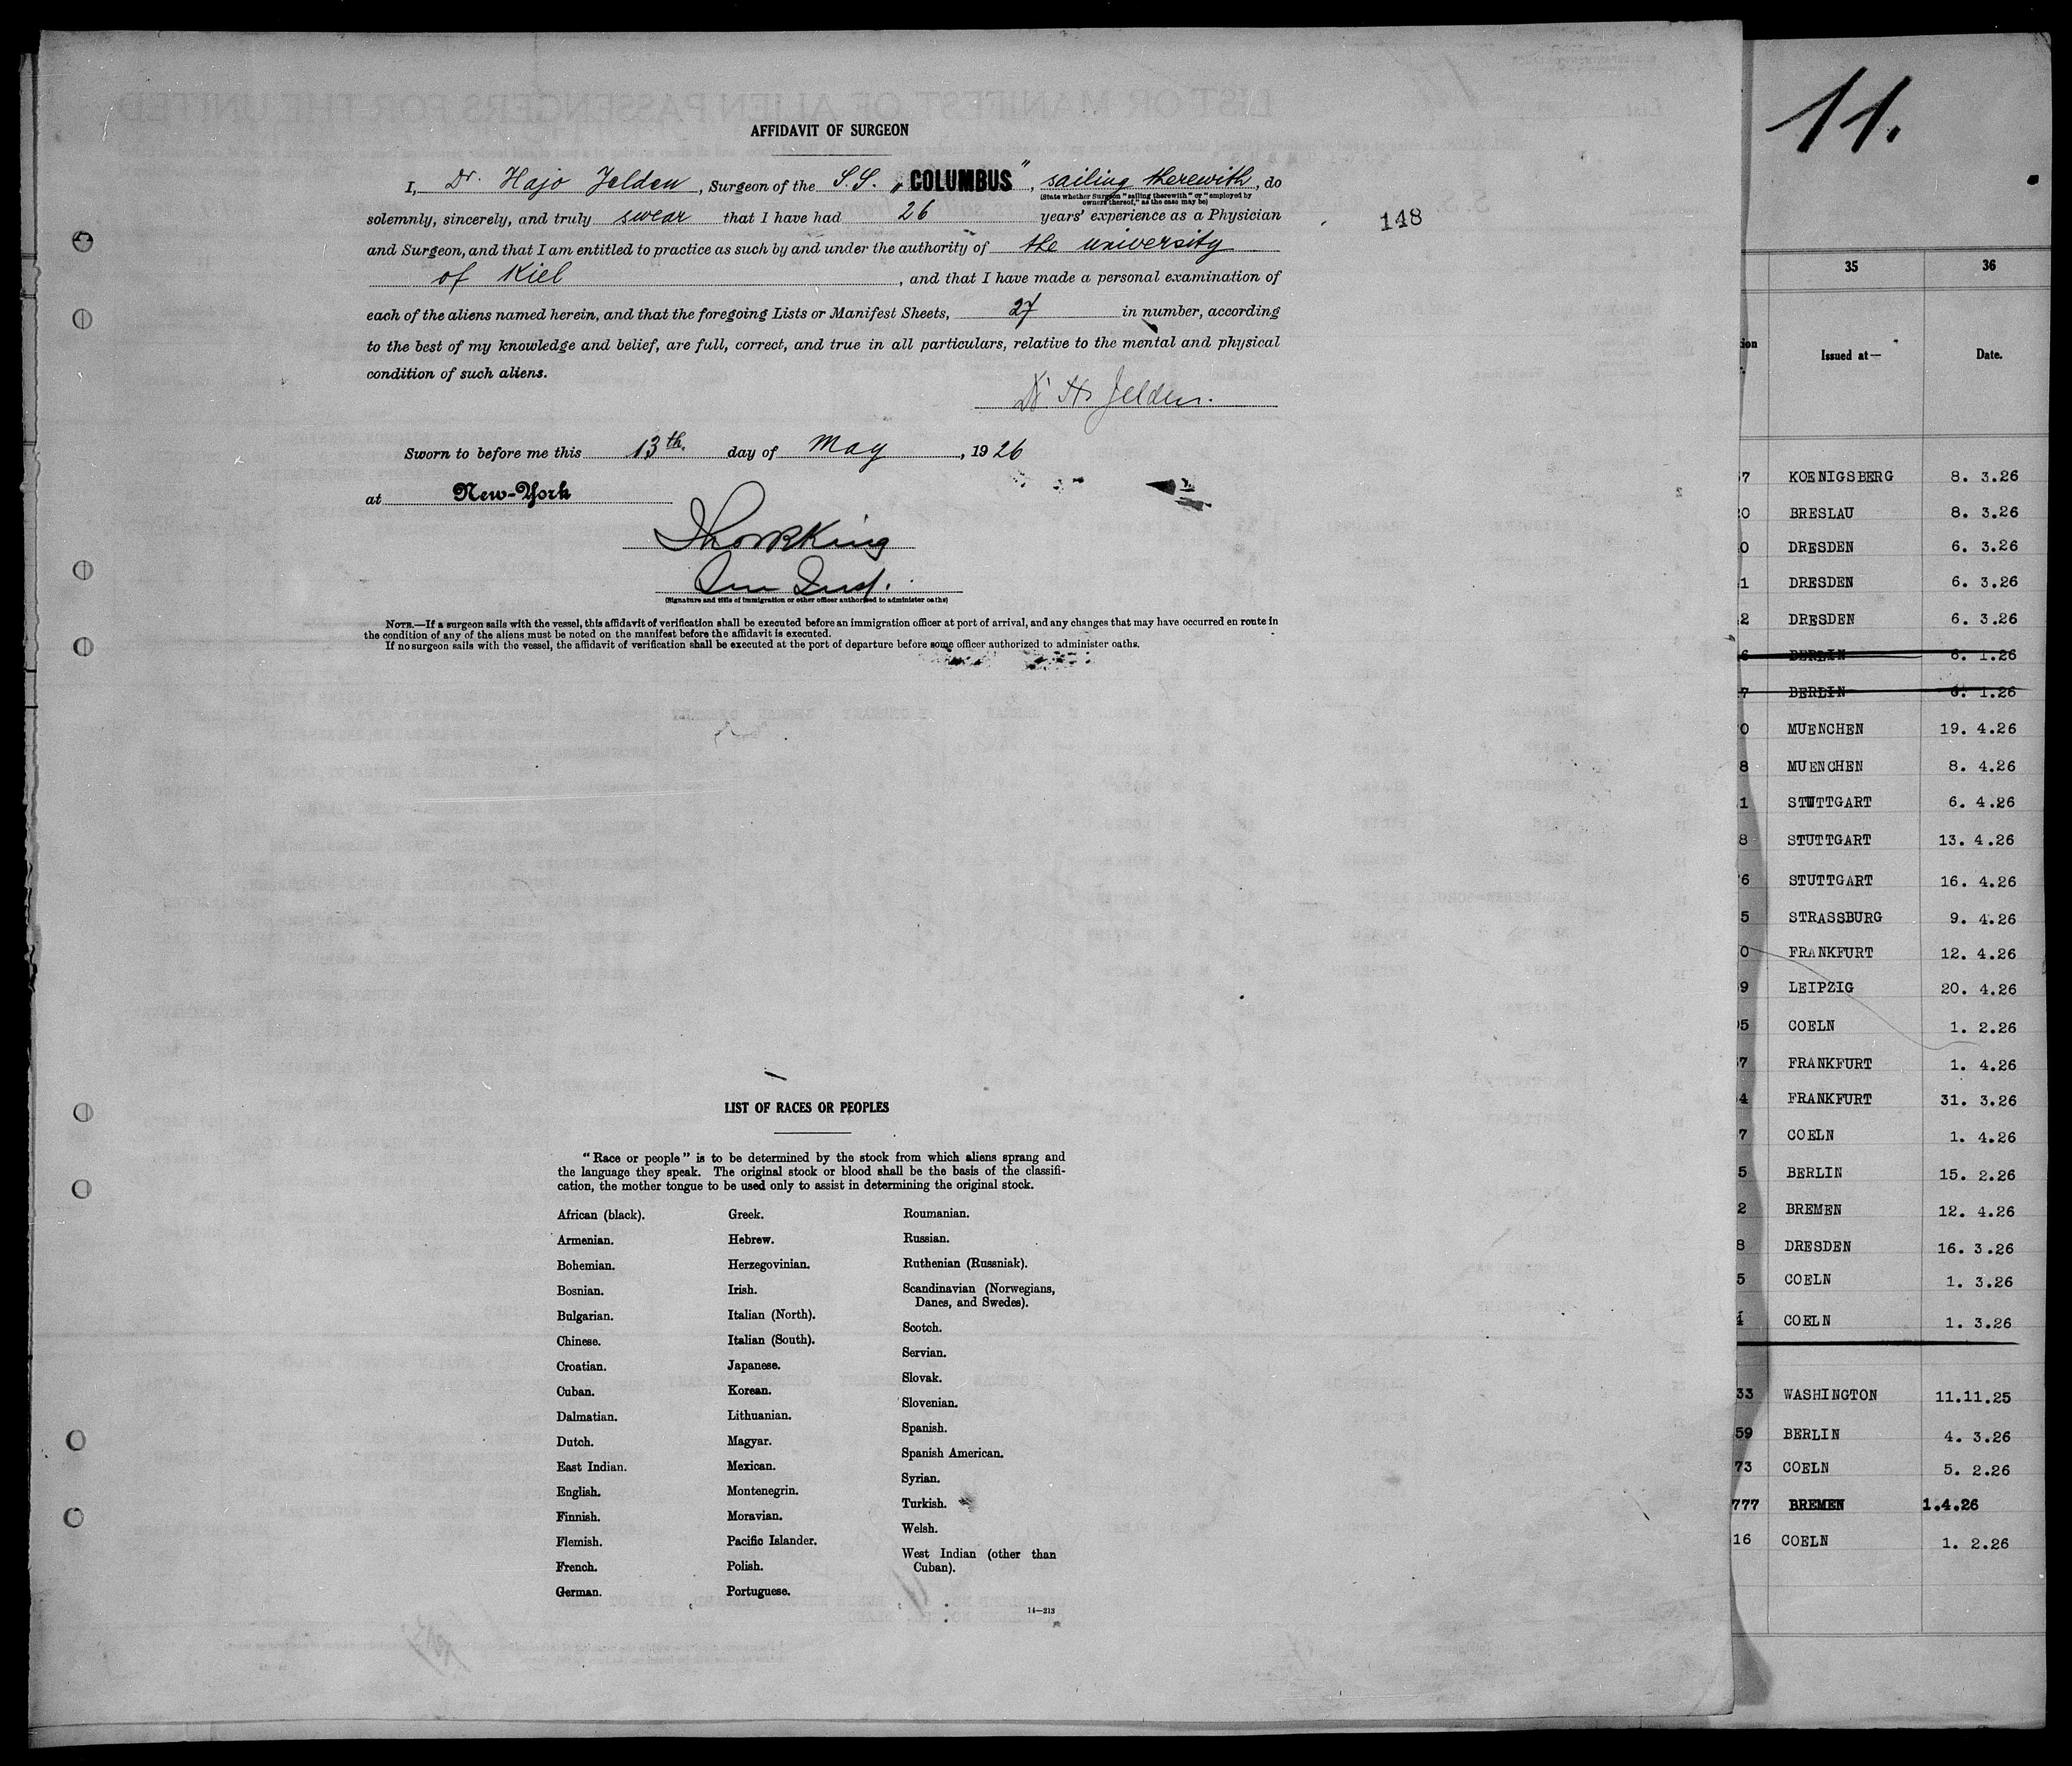 AFFIDAVIT OF SURGEON
I, Dr. Hajo Jelden, Surgeon of the S.S. „COLUMBUS”, sailing therewith, do
(State whether Surgeon "sailing therewith" or "employed by
owners thereof," as the case may be)
solemnly, sincerely, and truly swear that I have had 26 years' experience as a Physician
and Surgeon, and that I am entitled to practice as such by and under the authority of the university
of Kiel, and that I have made a personal examination of
each of the aliens named herein, and that the foregoing Lists or Manifest Sheets, 27 in number, according
to the best of my knowledge and belief, are full, correct, and true in all particulars, relative to the mental and physical
condition of such aliens.
Dr. H. Jelden.
Sworn to before me this 13th. day of May, 1926
at New-York
(Signature and title of immigration or other officer authorized to administer oaths)
NOTE.—If a surgeon sails with the vessel, this affidavit of verification shall be executed before an immigration officer at port of arrival, and any changes that may have occurred en route in
the condition of any of the aliens must be noted on the manifest before the affidavit is executed.
If no surgeon sails with the vessel, the affidavit of verification shall be executed at the port of departure before some officer authorized to administer oaths.
148
LIST OF RACES OR PEOPLES
"Race or people" is to be determined by the stock from which aliens sprang and
the language they speak. The original stock or blood shall be the basis of the classifi-
cation, the mother tongue to be used only to assist in determining the original stock.
African (black).
Armenian.
Bohemian.
Bosnian.
Bulgarian.
Chinese.
Croatian.
Cuban.
Dalmatian.
Dutch.
East Indian.
English.
Finnish.
Flemish.
French.
German.
Greek.
Hebrew.
Herzegovinian.
Irish.
Italian (North).
Italian (South).
Japanese.
Korean.
Lithuanian.
Magyar.
Mexican.
Montenegrin.
Moravian.
Pacific Islander.
Polish.
Portuguese.
Roumanian.
Russian.
Ruthenian (Russniak).
Scandinavian (Norwegians,
Danes, and Swedes).
Scotch.
Servian.
Slovak.
Slovenian.
Spanish.
Spanish American.
Syrian.
Turkish.
Welsh.
West Indian (other than
Cuban).
14—213
11.
35 36
Issued at— Date.
7 KOENIGSBERG 8. 3.26
0 BRESLAU 8. 3.26
0 DRESDEN 6. 3.26
1 DRESDEN 6. 3.26
2 DRESDEN 6. 3.26
6 BERLIN 6. 1.26
7 BERLIN 6. 1.26
0 MUENCHEN 19. 4.26
8 MUENCHEN 8. 4.26
1 STUTTGART 6. 4.26
8 STUTTGART 13. 4.26
6 STUTTGART 16. 4.26
5 STRASSBURG 9. 4.26
0 FRANKFURT 12. 4.26
9 LEIPZIG 20. 4.26
5 COELN 1. 2.26
7 FRANKFURT 1. 4.26
4 FRANKFURT 31. 3.26
7 COELN 1. 4.26
5 BERLIN 15. 2.26
2 BREMEN 12. 4.26
8 DRESDEN 16. 3.26
5 COELN 1. 3.26
4 COELN 1. 3.26
33 WASHINGTON 11.11.25
59 BERLIN 4. 3.26
73 COELN 5. 2.26
777 BREMEN 1.4.26
16 COELN 1. 2.26